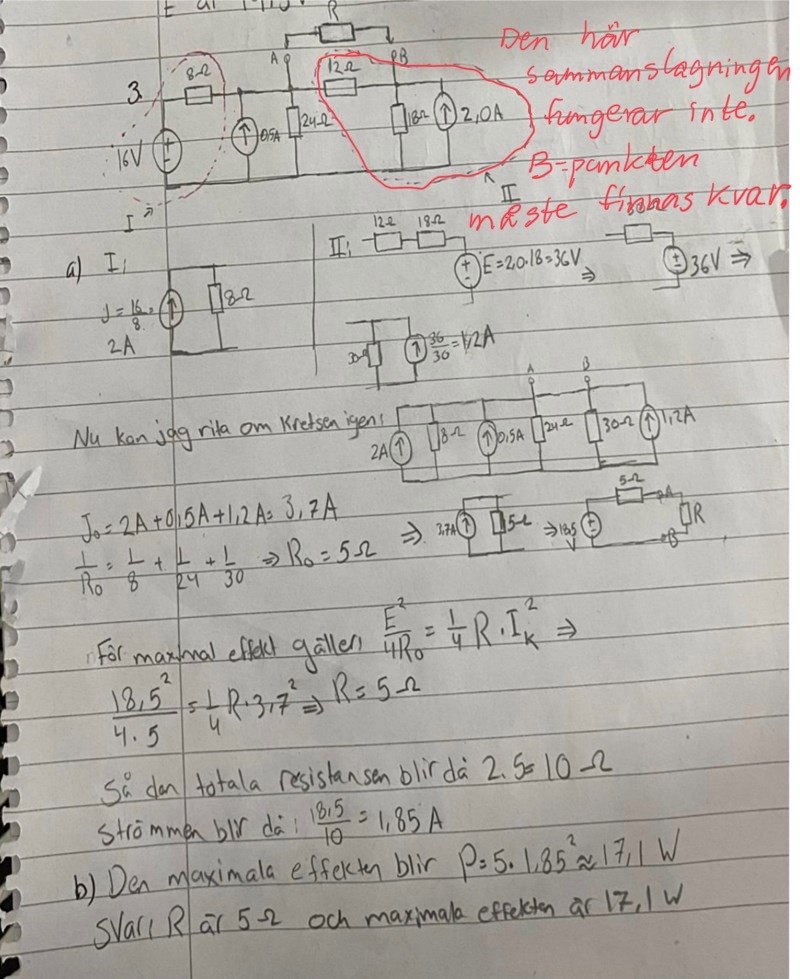 R
A
B
3.
8Ω
12Ω
16V
0,5A
24Ω
18Ω
2,0A
I
II
Den här
sammanslagningen
fungerar inte.
B-punkten
måste finnas kvar.
a) I:
J = 16/8 =
2A
8Ω
II:
12Ω 18Ω
E=2,0·18=36V
⇒
36V ⇒
36/30 = 1,2A
Nu kan jag rita om kretsen igen:
2A
8Ω
0,5A
A
24Ω
B
30Ω
1,2A
J₀ = 2A+0,5A+1,2A= 3,7A
1/R₀ = 1/8 + 1/24 + 1/30 ⇒ R₀ = 5Ω
⇒
3,7A
5Ω
⇒
18,5
V
5Ω
A
R
B
För maximal effekt gäller: E²/4R₀ = 1/4 R · I_K² ⇒
18,5²/4·5 = 1/4 R·3,7² ⇒ R = 5Ω
Så den totala resistansen blir då 2·5=10Ω
Strömmen blir då: 18,5/10 = 1,85A
b) Den maximala effekten blir P=5·1,85²≈17,1 W
Svar: R är 5Ω och maximala effekten är 17,1 W